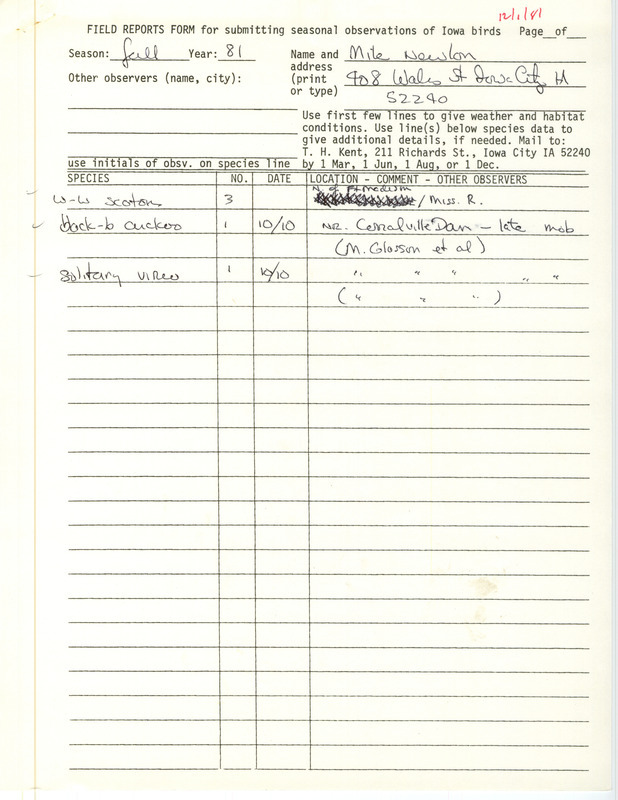 12/1/81
FIELD REPORTS FORM for submitting seasonal observations of Iowa birds Page__of__
Season: fall Year: 81 Name and Mike Newlon
address
Other observers (name, city): (print 408 Wales St Iowa City, IA
or type) 52240
Use first few lines to give weather and habitat
conditions. Use line(s) below species data to
give additional details, if needed. Mail to:
T. H. Kent, 211 Richards St., Iowa City IA 52240
use initials of obsv. on species line by 1 Mar, 1 Jun, 1 Aug, or 1 Dec.
SPECIES NO. DATE LOCATION - COMMENT - OTHER OBSERVERS
N. of Ft. Madison
W-W Scoters 3 / Miss R.
black-b cuckoo 1 10/10 NR. Corralville Dam - late mob
(M. Glosson et al)
Solitary vireo 1 10/10 " " " " "
( " " " )